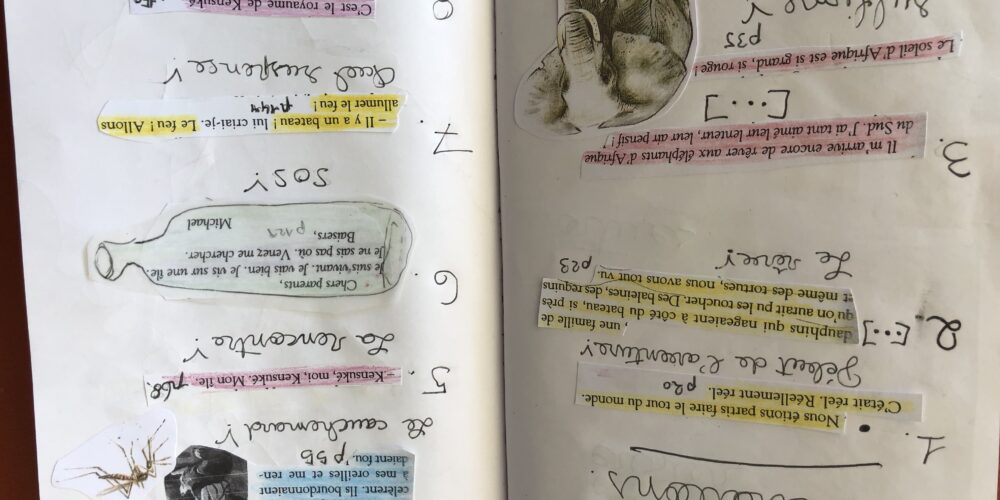 1. Nous étions partis faire le tour du monde.
C'était réel. Réellement réel. p20
Début de l'aventure !
2. [...] une famille de
dauphins qui nageaient à côté du bateau, si près
qu'on aurait pu les toucher. Des baleines, des requins
et même des tortues, nous avons tout vu. p23
Le rêve !
3. Il m'arrive encore de rêver aux éléphants d'Afrique
du Sud. J'ai tant aimé leur lenteur, leur air pensif !
[...]
Le soleil d'Afrique est si grand, si rouge !
p35
Sublime !
célèrent. Ils bourdonnaient
à mes oreilles et me ren-
daient fou. p55
Le cauchemard !
5. – Kensuké, moi, Kensuké. Mon île. p68
La rencontre !
6. Chers parents,
Je suis vivant. Je vais bien. Je vis sur une île.
Je ne sais pas où. Venez me chercher.
Baisers,
Michael
SOS !
7. – Il y a un bateau ! lui criai-je. Le feu ! Allons
allumer le feu !
Quel suspence !
C'est le royaume de Kensuké.